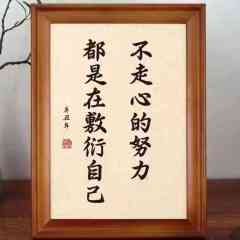 不走心的努力
都是在敷衍自己
辛丑年